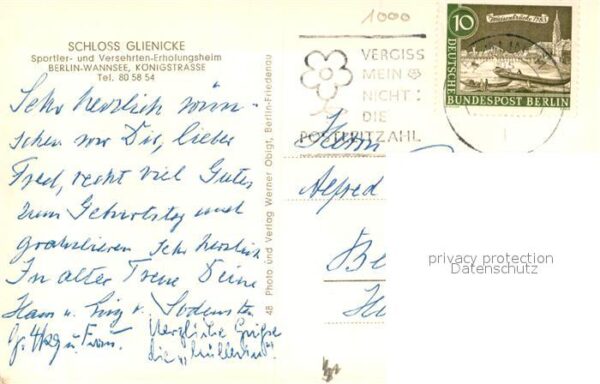 SCHLOSS GLIENICKE
Sportler- und Versehrten-Erholungsheim
BERLIN-WANNSEE, KÖNIGSTRASSE
Tel. 80 58 54
Sehr herzlich wün-
schen wir Dir, lieber
Fred, recht viel Gutes
zum Geburtstag und
gratulieren sehr herzlich
In alter Treue Deine
Hans u.
Herzliche Grüße
die
48 Photo und Verlag Werner Obigt, Berlin-Friedenau
1000
VERGISS
MEIN
NICHT:
DIE
POSTLEITZAHL
10
DEUTSCHE
BUNDESPOST BERLIN
Herrn
Alfred
Be
privacy protection
Datenschutz